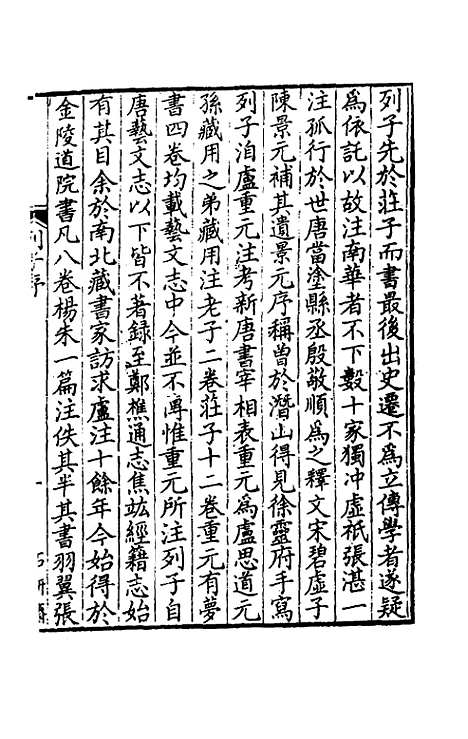 列子先於莊子而書最後出史遷不為立傳學者遂疑
為依託以故注南華者不下數十家獨沖虛祇張湛一
注孤行於世唐當塗縣丞殷敬順為之釋文宋碧虛子
陳景元補其遺景元序稱曾於潛山得見徐靈府手寫
列子洎盧重元注考新唐書宰相表重元為盧思道元
孫藏用之弟藏用注老子二卷莊子十二卷重元有夢
書四卷均載藝文志中今並不傳惟重元所注列子自
唐藝文志以下皆不著錄至鄭樵通志焦竑經籍志始
有其目余於南北藏書家訪求盧注十餘年今始得於
金陵道院書凡八卷楊朱一篇注佚其半其書羽翼張
列子序
一
石研齋